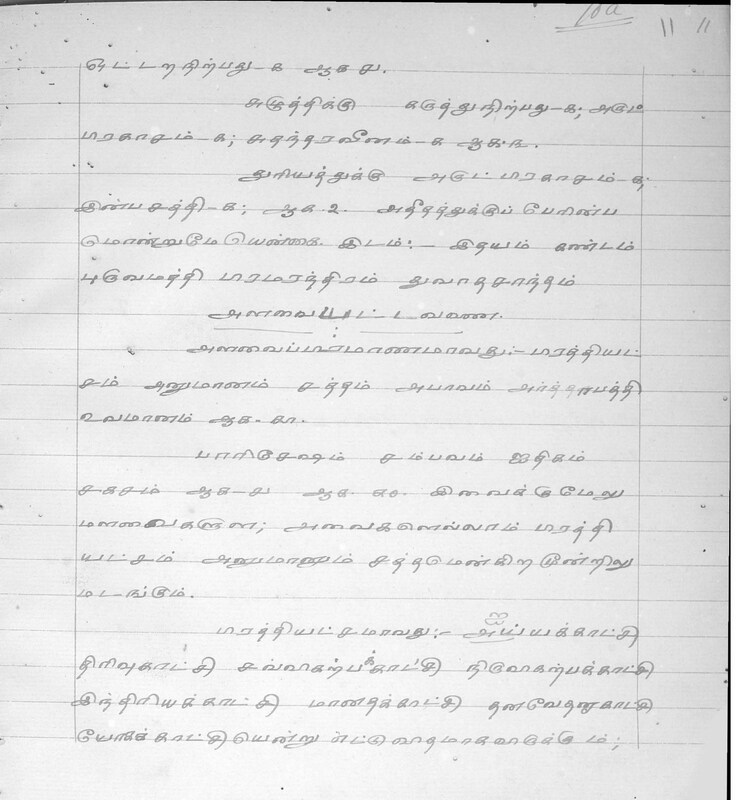 10a 11 11
ஓட்டறநிற்பது-௧ ஆக ௬.
சுழுத்திக்கு கடுத்துநிற்பது-௧; அருட்
பரகாசம்-௧; சுதந்தரவீனம்-௧ ஆக.௩.
துரியத்துக்கு அருட் பரகாசம்-௧;
இன்பசத்தி-௧; ஆக ௨. அதீதத்துக்குப் பேரின்ப
மொன்றுமேயென்க. இடம்:- இதயம் கண்டம்
புருவமத்தி பரமரந்திரம் துவாதசாந்தம்
அளவைபட்டவணை.
அளவைப்பிரமாணமாவது:- பரத்தியட்
சம் அனுமானம் சத்தம் அபாவம் அர்த்தாபத்தி
உவமானம் ஆக-௬௱.
பாரிசேஷம் சம்பவம் ஐதிகம்
சகசம் ஆக-௪ ஆக. ௧௦. இவைக்குமேலு
மளவைகளுள; அவைகளெல்லாம் பரத்தி
யட்சம் அனுமானம் சத்தமென்கிற மூன்றிலு
மடங்கும்.
பரத்தியட்சமாவது:- ஐய்யக்காட்சி
திரிவுகாட்சி சவ்விகற்பக்காட்சி நிருவிகற்பக்காட்சி
இந்திரியக்காட்சி மானதக்காட்சி தனவேதனுகாட்சி
யோகக்காட்சியென்று எட்டுவிதமாகவிருக்கும்;